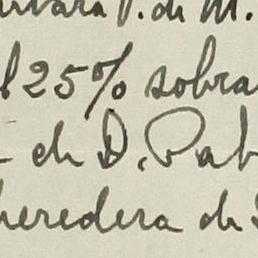 P. de M.
l 25% sobra
de D. Pab
heredera de